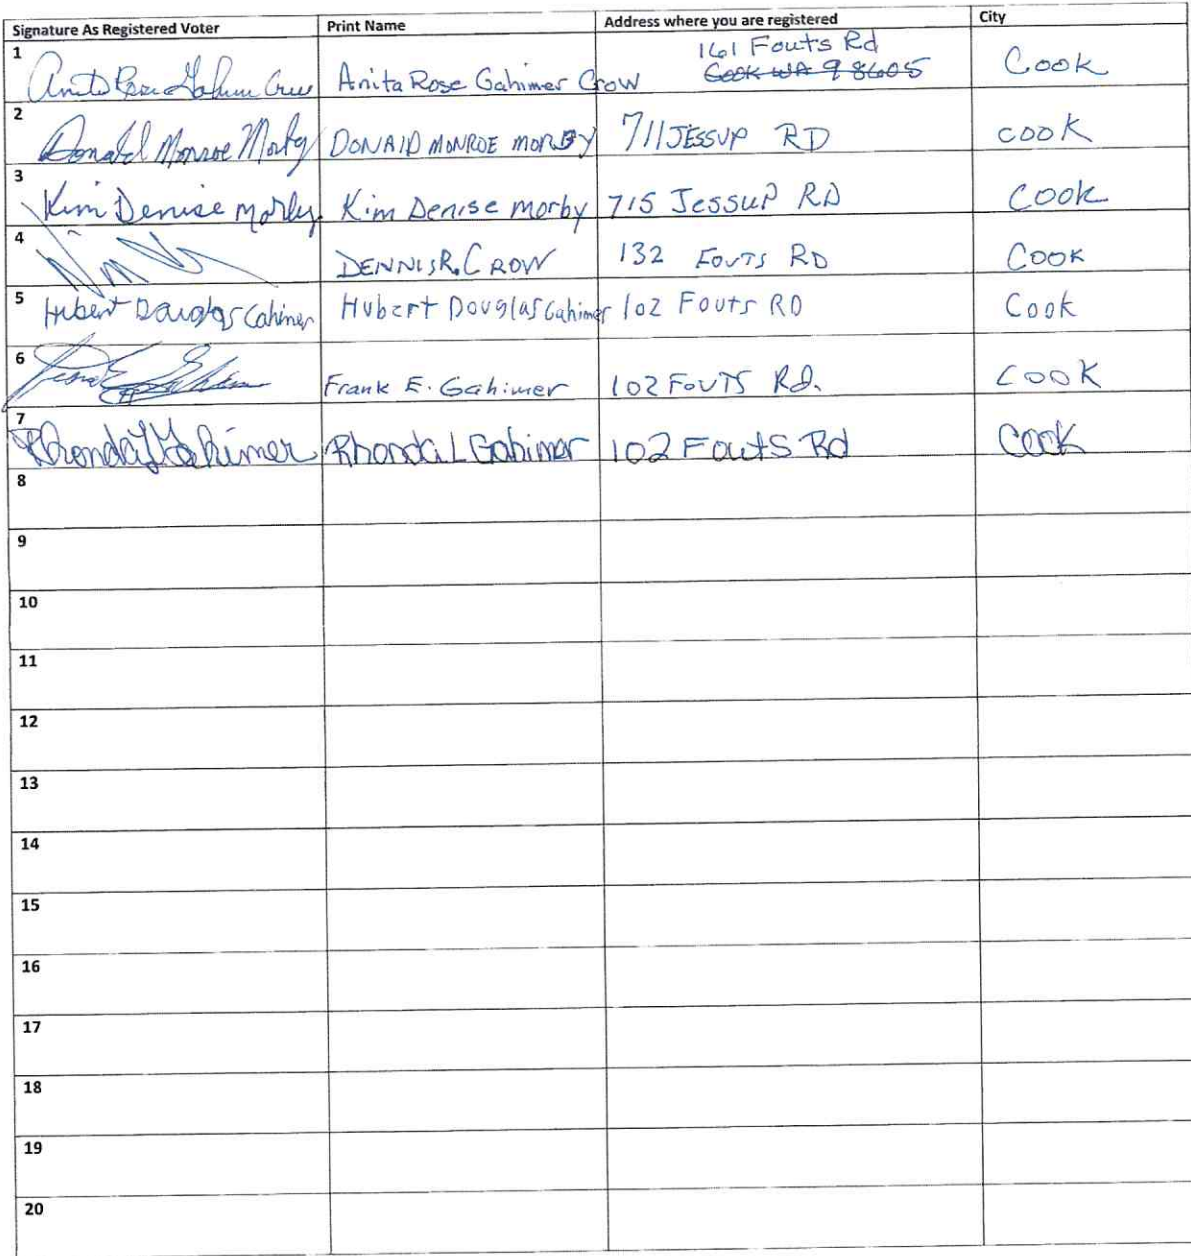 Signature As Registered Voter Print Name Address where you are registered City
1 Anita Rose Gahimer Crow Anita Rose Gahimer Crow 161 Fouts Rd Cook
Cook WA 98605
2 Donald Monroe Morby DONALD MONROE MORBY 711 JESSUP RD COOK
3 Kim Denise Morby Kim Denise morby 715 Jessup RD Cook
4 DENNIS R. CROW 132 FOUTS RD COOK
5 Hubert Douglas Gahimer Hubert Douglas Gahimer 102 Fouts RD Cook
6 Frank E. Gahimer 102 FOUTS Rd. COOK
7 Rhonda L Gahimer Rhonda L Gahimer 102 Fouts Rd Cook
8
9
10
11
12
13
14
15
16
17
18
19
20